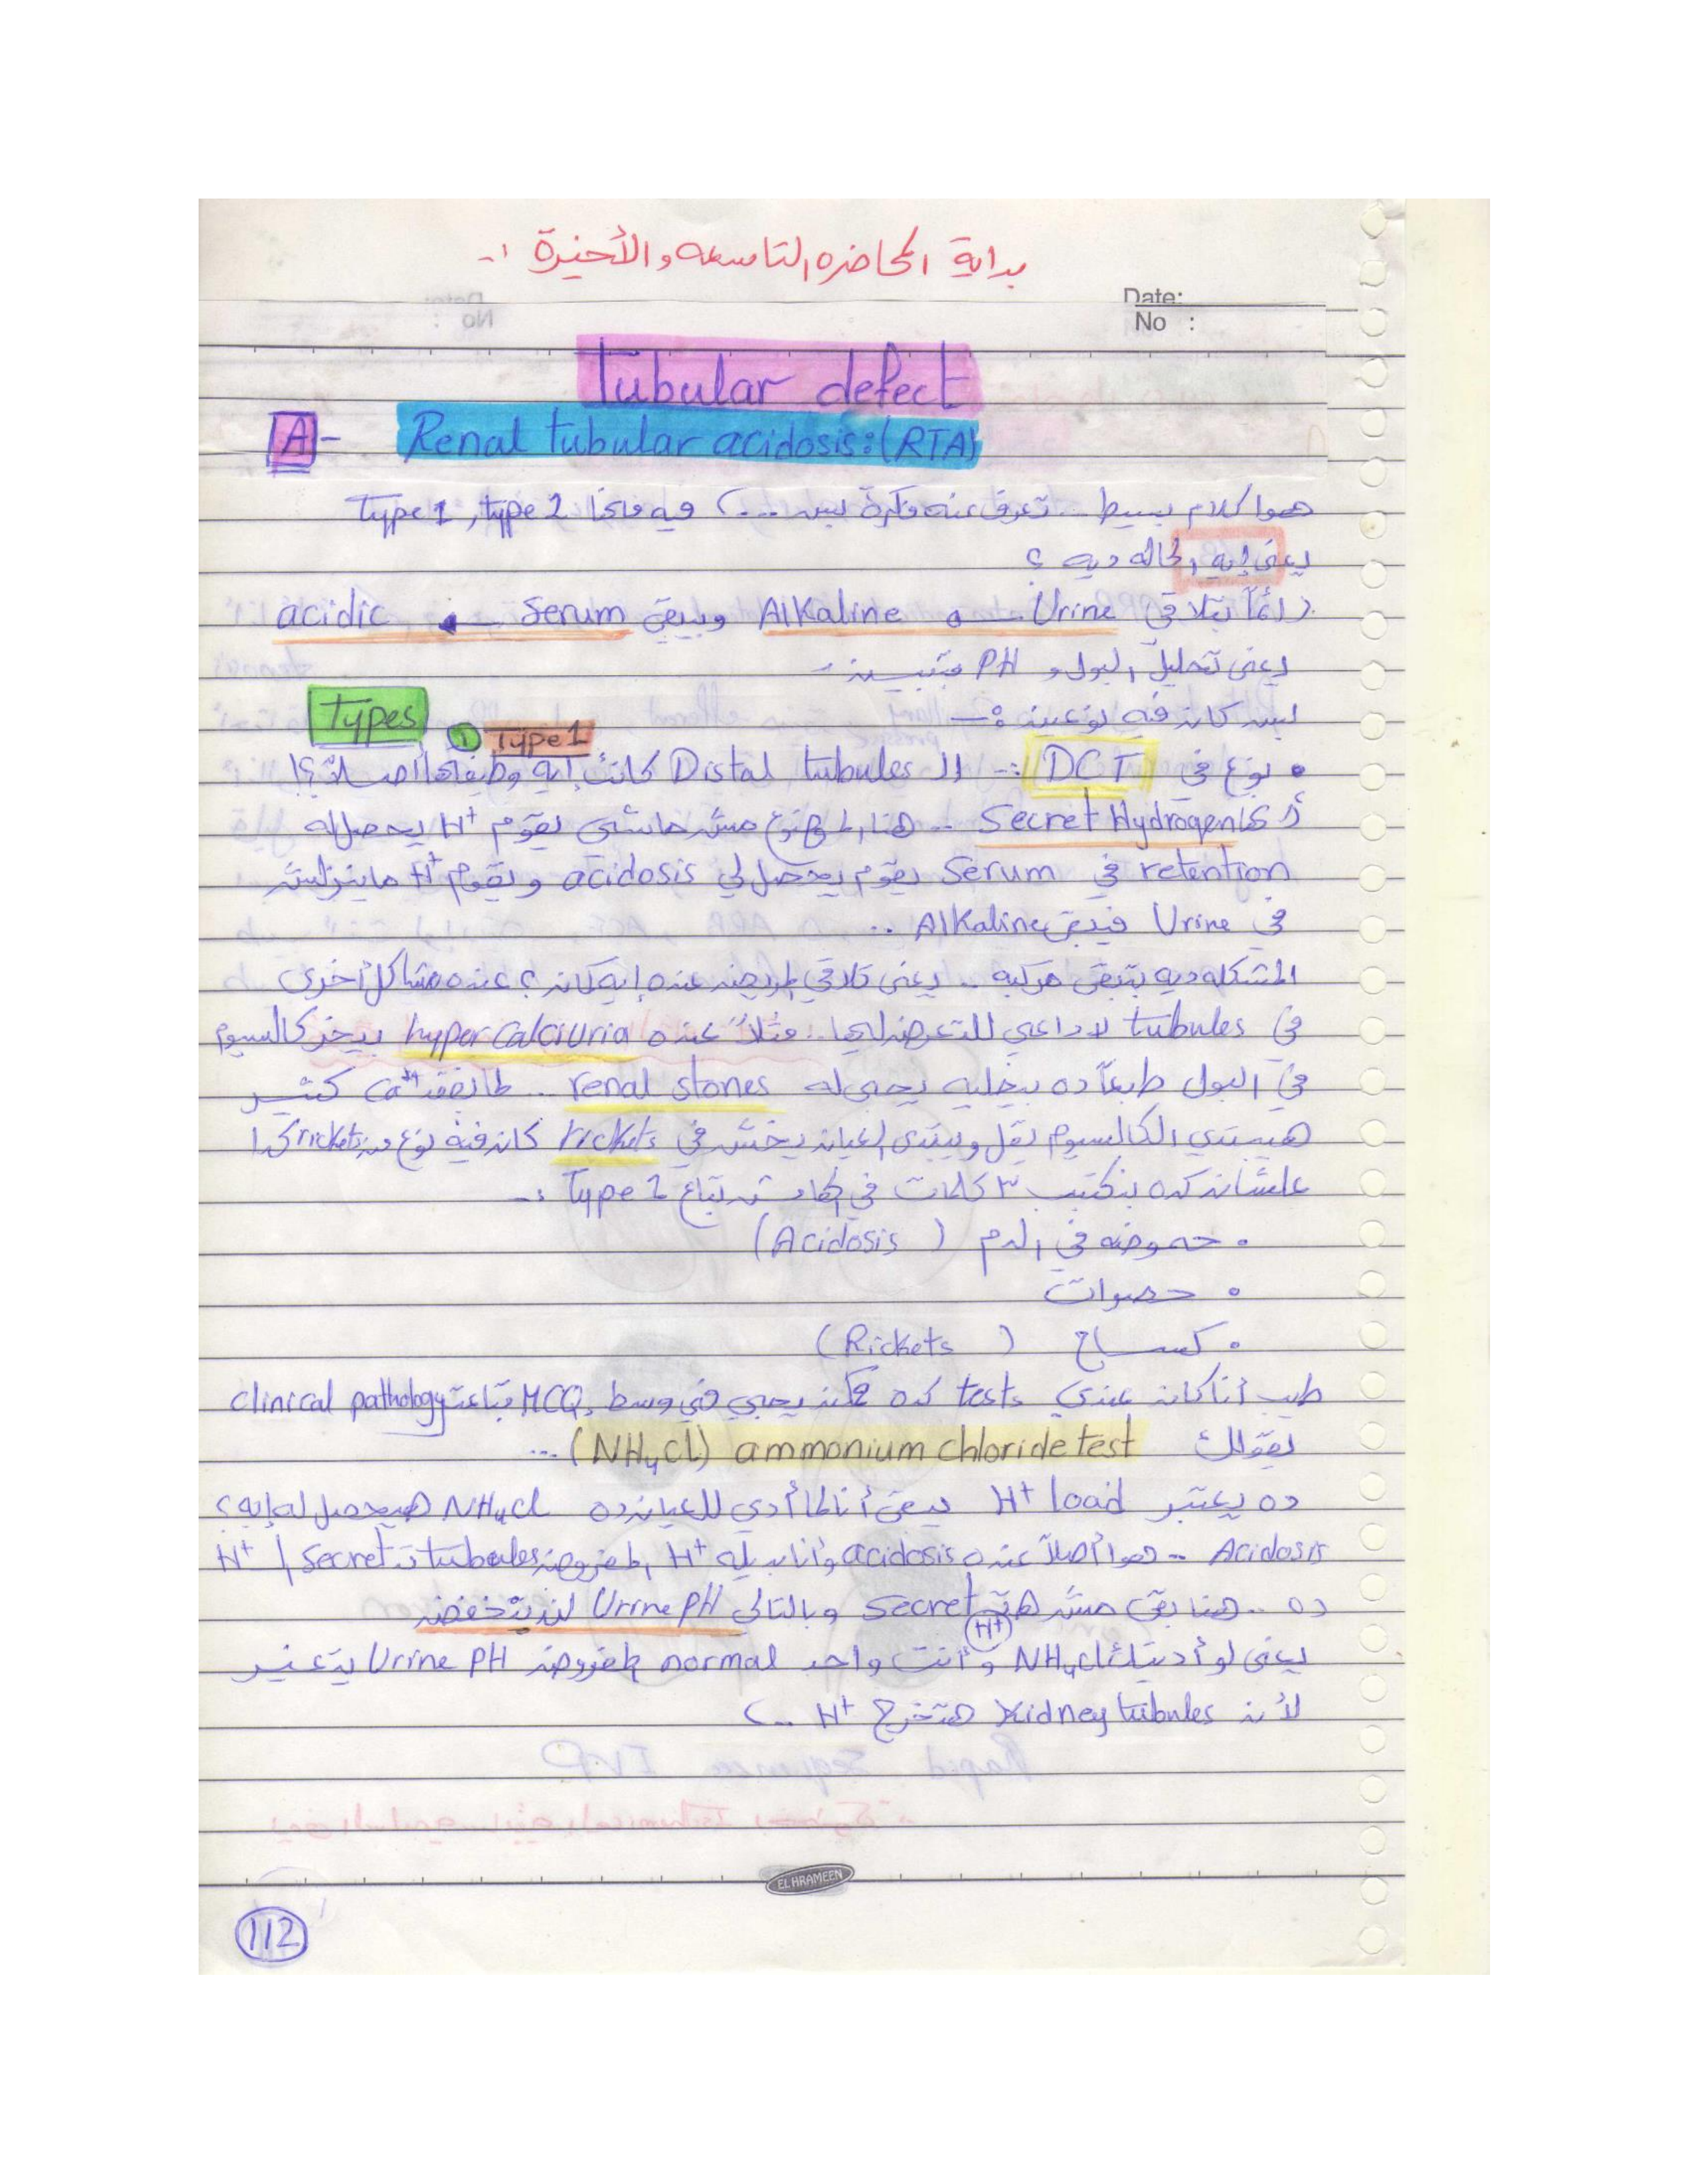 بداية المحاضرة التاسعه والأخيرة :-
Date:
No :
Tubular defect
A - Renal tubular acidosis: (RTA)
هموا كلام بسيط .. تعرف عنه فكرة بس ... فيه type 1, type 2
يعني إيه الحاله ديه ؟
دايماً تلاقي Urine Alkaline ويبقى Serum acidic
يعني تحليل البول و PH
بس كان فيه نوعين :-
Types ① Type 1
• نوع في DCT :- الـ Distal tubules كانت إيه وظيفتها أصلاً ؟!
Secret Hydrogen .. هنا الموضوع مش ماشي يقوم H+ يحصله
retention في Serum يقوم يحصل لي acidosis ويقوم H+ ماينزلش
في Urine فيبقى Alkaline ..
المشكله ديه بتبقى مركبه .. يعني تلاقي المريض عنده إيه كمان ؟ عنده مشاكل أخرى
في tubules لا داعي للتعرض ليها .. مثلاً عنده hypercalciuria بيخر كالسيوم
في البول طبعاً ده بيخليه يجي له renal stones .. لما يفقد Ca++ كتير
هيبتدي الكالسيوم يقل ويبتدي العيان يخش في rickets كان فيه نوع من rickets كدا
علشان كده بنكتب ٣ كلمات في تاع Type 1 :-
• حموضه في الدم (Acidosis)
• حصوات
• كساح (Rickets)
طيب أنا كان عندي tests كده ممكن يجي في وسط MCQ بتاعت clinical pathology
يقولك ammonium chloride test (NH4Cl) ...
ده يعتبر H+ load يبقى أنا لما أدي للعيان ده NH4Cl هيحصل له إيه ؟
Acidosis .. هوا أصلاً عنده acidosis وأنا بديله H+ المفروض tubules تـ Secret الـ H+
ده .. هنا بقى مش هتـ Secret (H+) وبالتالي Urine PH لن تنخفض
يعني لو أديتك NH4Cl وأنت واحد normal المفروض Urine PH يتغير
لأن Kidney tubules هتخرج H+ ..
EL HRAMEEN
112